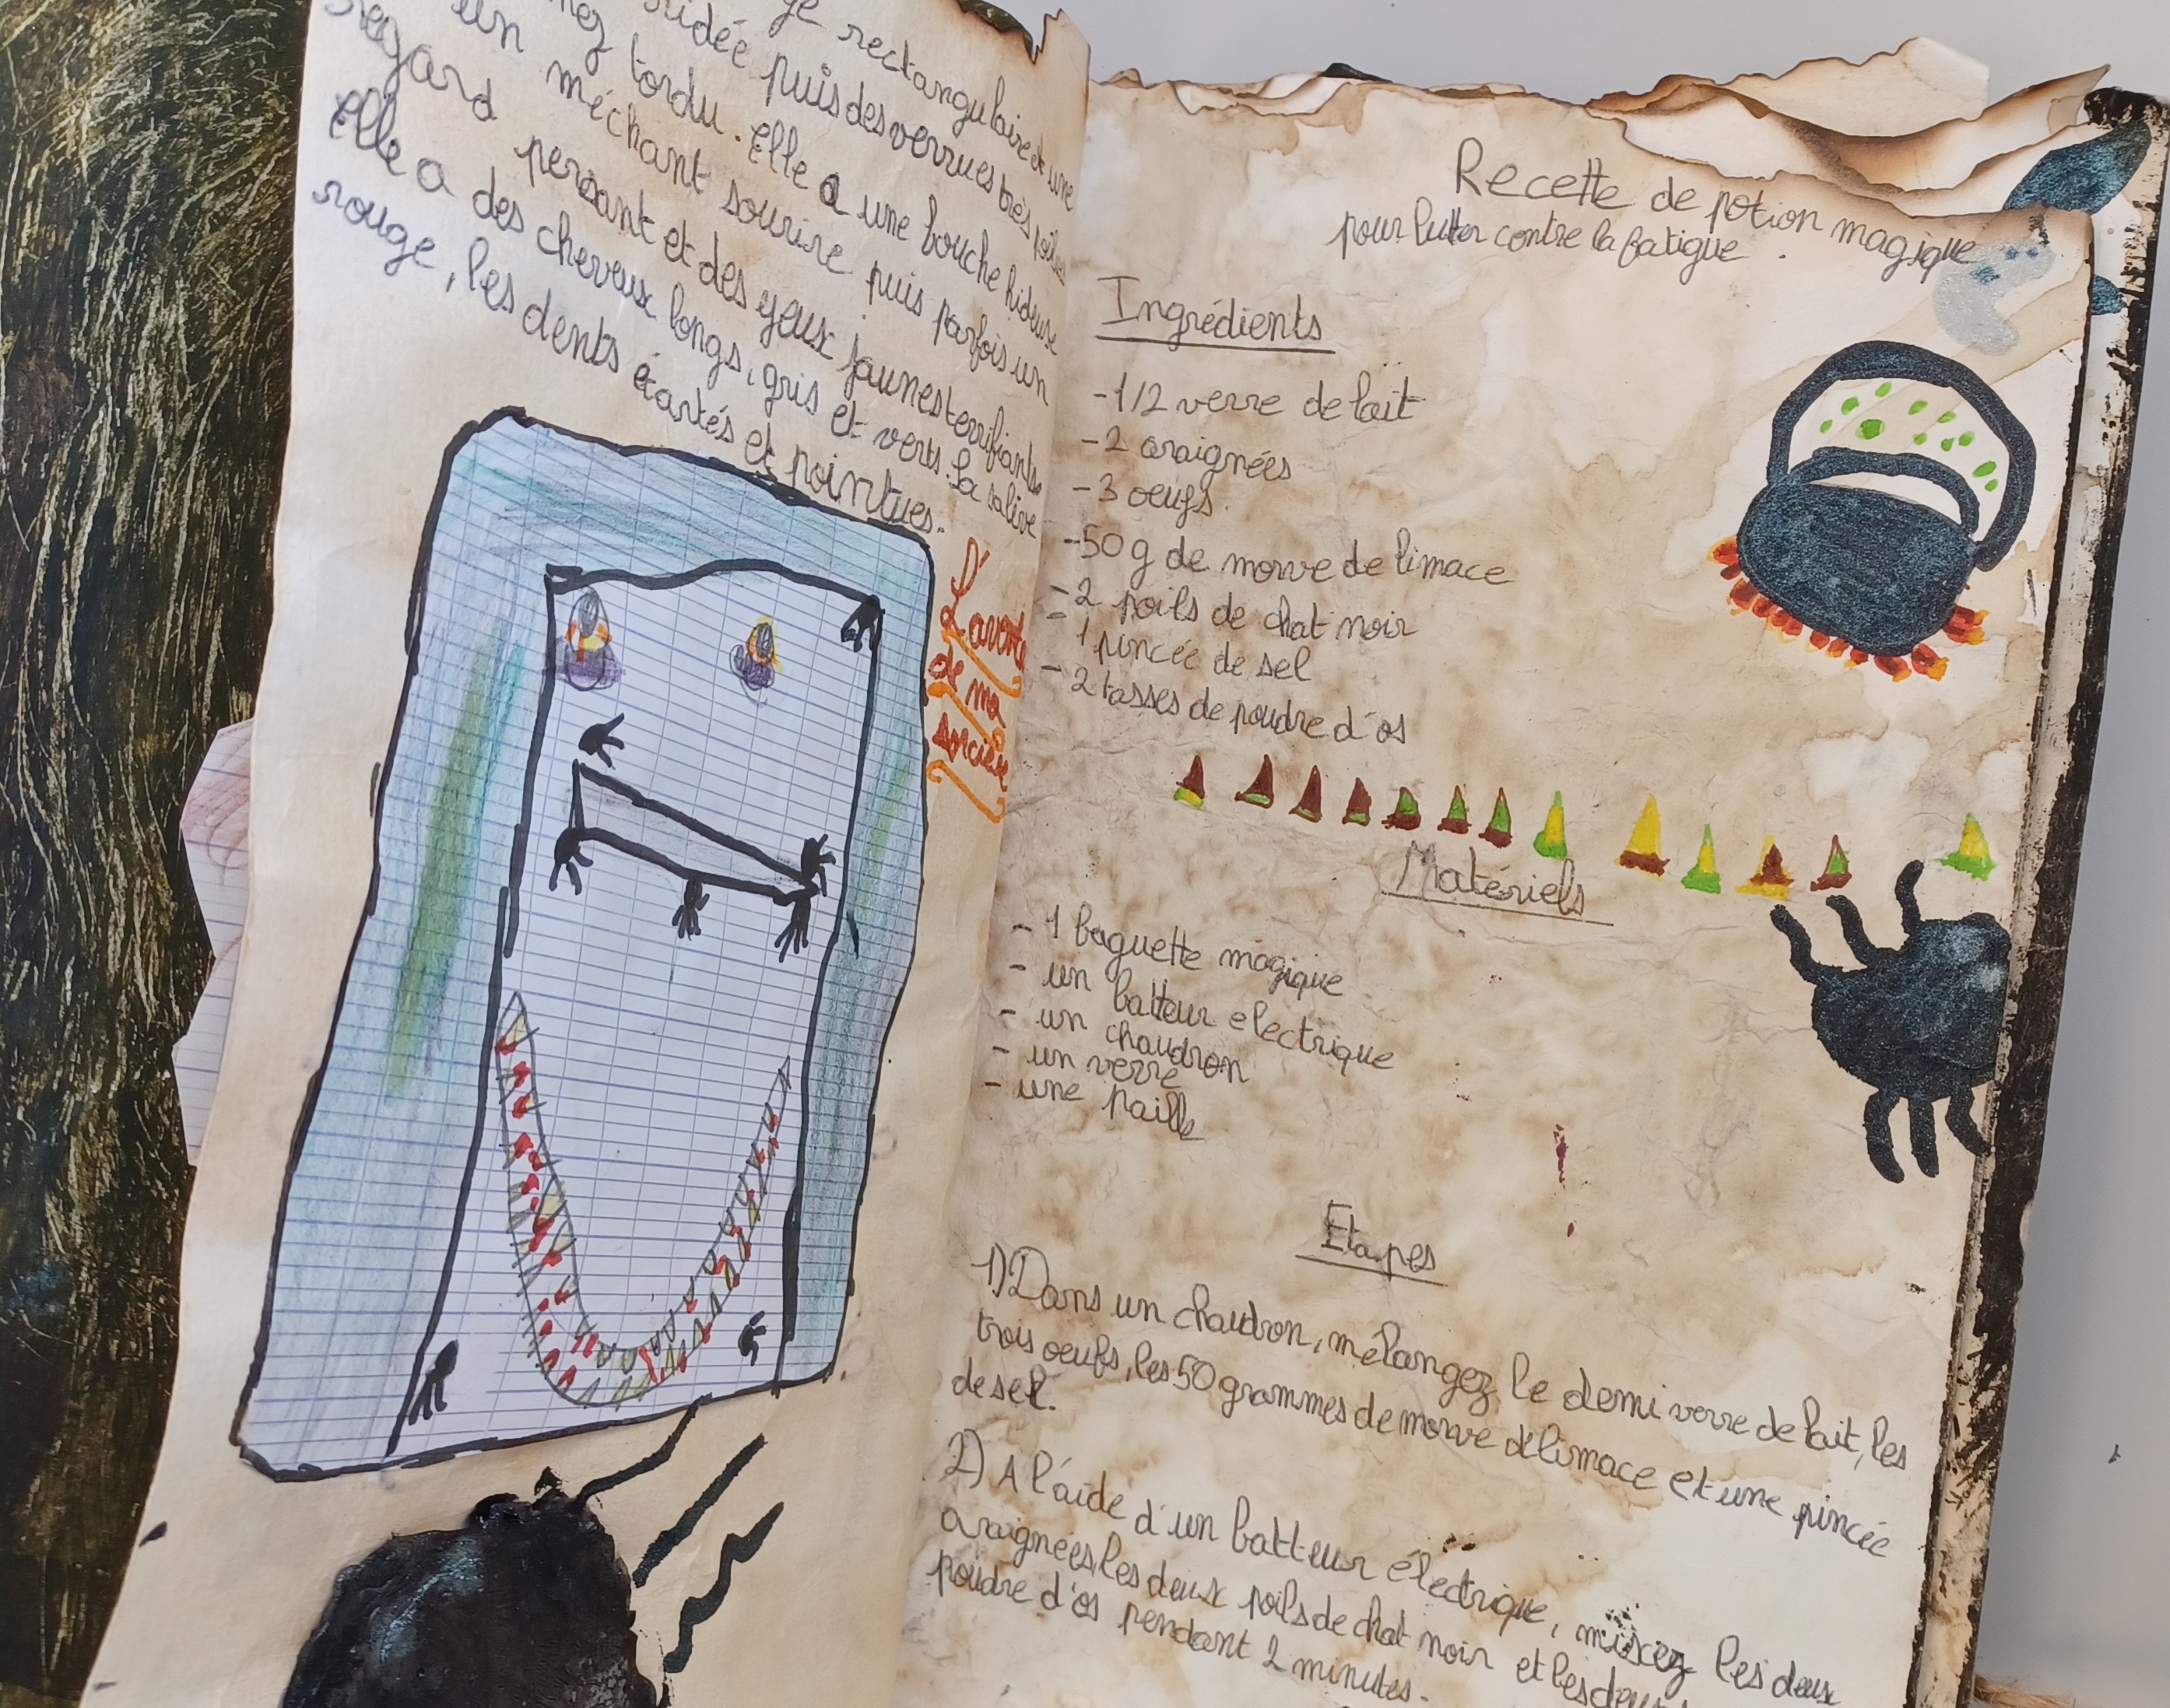 rectangulaire de une
ridée puis des verrues très poilues
nez tordu. Elle a une bouche hideuse
un méchant sourire puis parfois un
regard persant et des yeux jaunes terrifiants.
Elle a des cheveux longs, gris et verts. La salive
rouge, les dents écartés et pointues.
de ma
sorcière
Recette de potion magique
pour lutter contre la fatigue.
Ingrédients
-1/2 verre de lait
-2 araignées
-3 oeufs.
-50 g de morve de limace
-2 poils de chat noir
- 1 pincée de sel
- 2 tasses de poudre d'os
Matériels
- 1 baguette magique
- un batteur electrique
- un chaudron
- un verre
- une paille
Etapes
1) Dans un chaudron, mélangez le demi verre de lait, les
trois oeufs, les 50 grammes de morve de limace et une pincée
de sel.
2) A l'aide d'un batteur électrique, mixez les deux
araignées, les deux poils de chat noir et les deux
poudre d'os pendant 2 minutes.